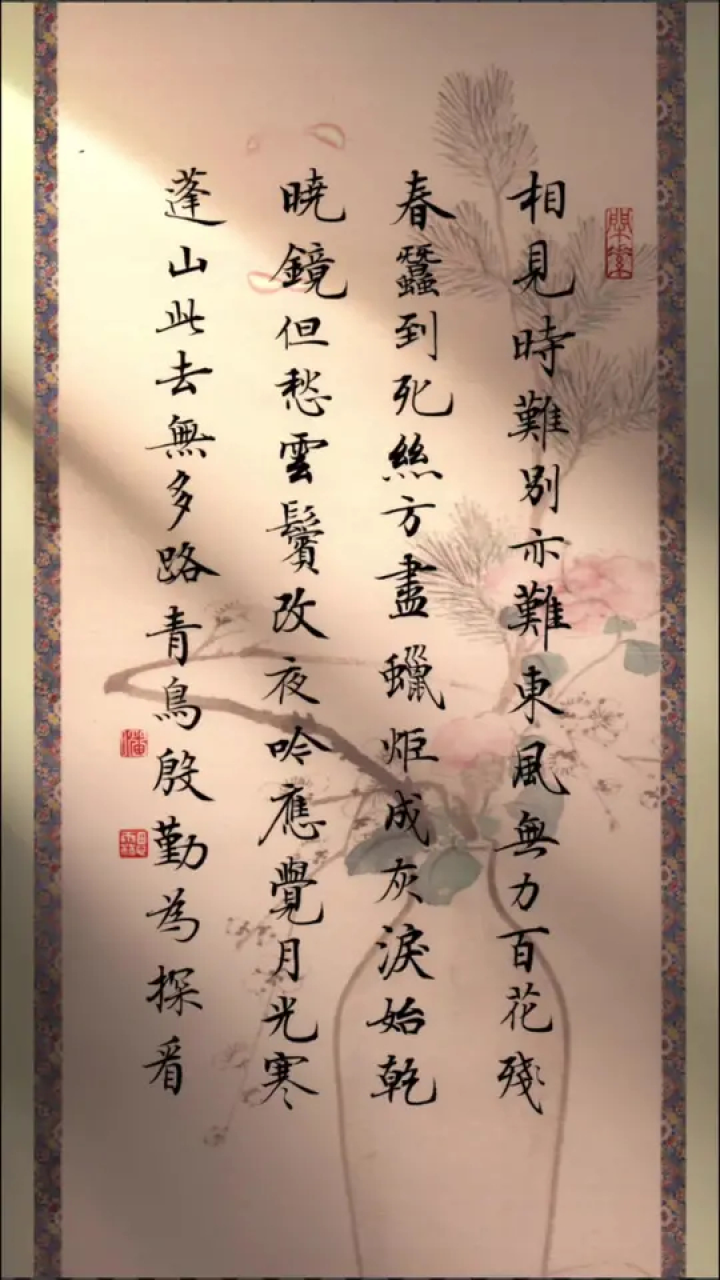 相見時難別亦難東風無力百花殘
春蠶到死絲方盡蠟炬成灰淚始乾
曉鏡但愁雲鬢改夜吟應覺月光寒
蓬山此去無多路青鳥殷勤為探看